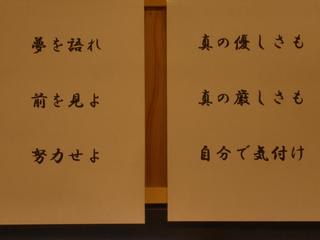 夢を語れ
前を見よ
努力せよ
真の優しさも
真の厳しさも
自分で気付け